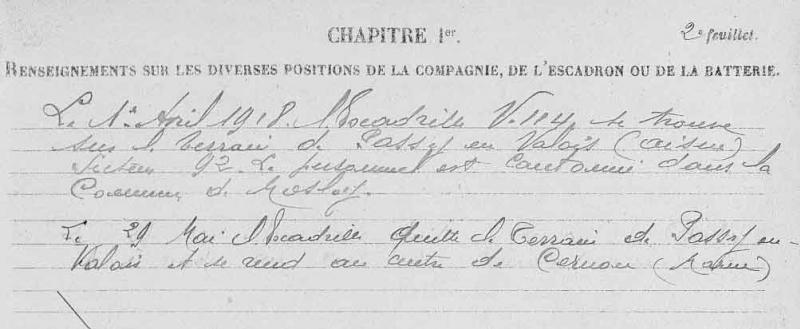 CHAPITRE 1er.
2e feuillet.
RENSEIGNEMENTS SUR LES DIVERSES POSITIONS DE LA COMPAGNIE, DE L'ESCADRON OU DE LA BATTERIE.
Le 1er April 1918. l'Escadrille V.114, se trouve
sur le terrain de Passy en Valois (aisne)
Secteur 92. Le personnel est cantonné dans la
Commune de
Le 29 Mai l'Escadrille quitte le Terrain de Passy en-
Valois et se rend au centre de Cernon (Marne)